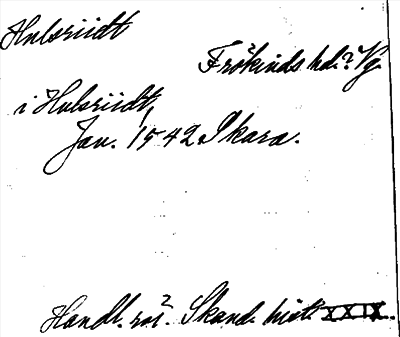 Hulsriidt
Frökinds hd.? Vg.
i Hulsriidt,
Jan. 1542 Skara.
Handl. rör. Skand. hist. XXIX.